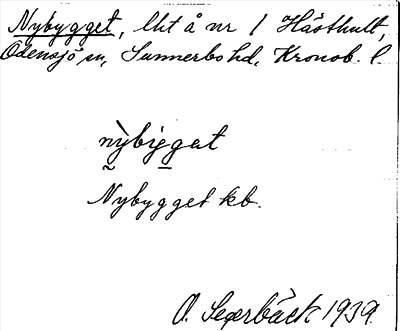 Nybygget, lht å nr 1 Hästhult,
Odensjö sn, Sunnerbo hd, Kronob. l.
nỳbiggat
Nybygget kb.
O. Segerbäck 1939.